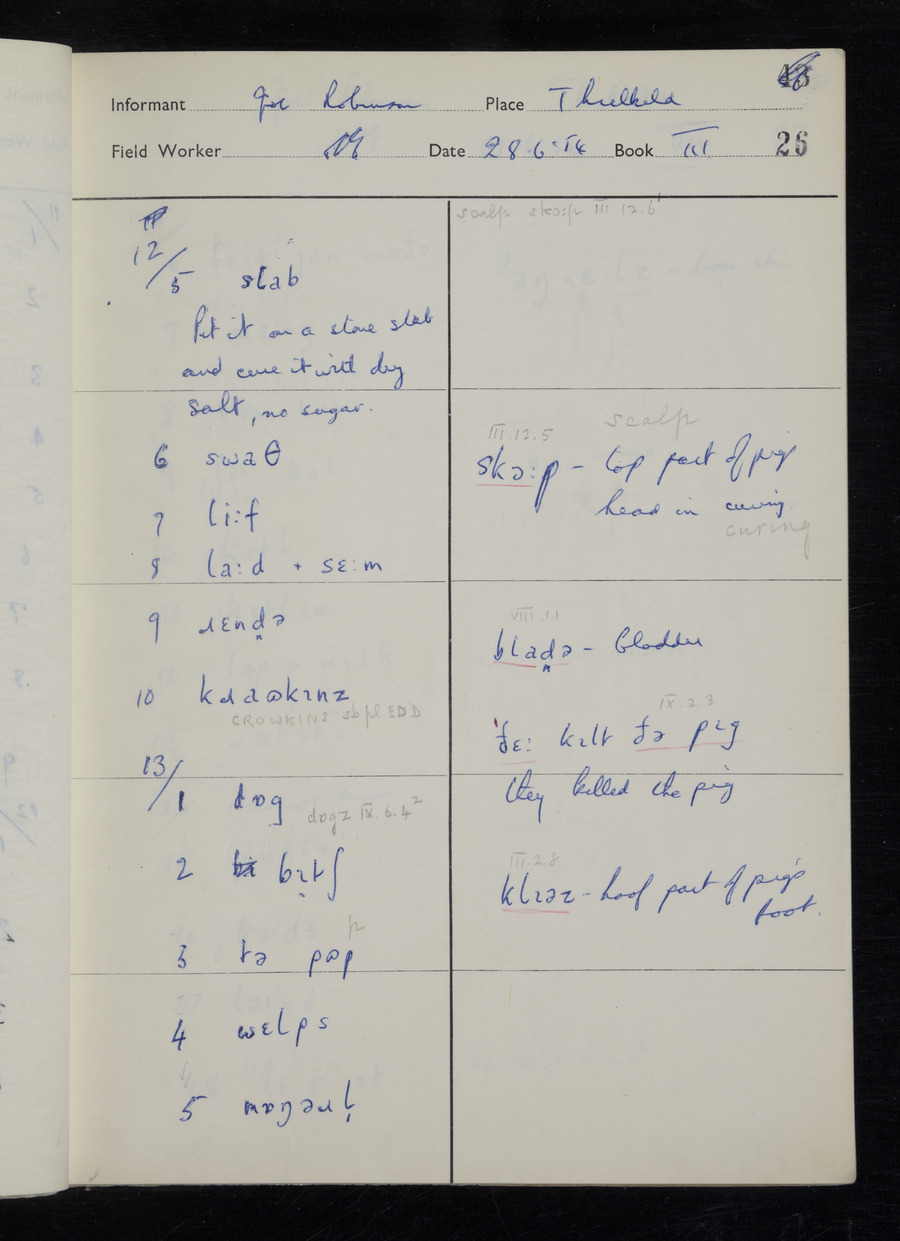 Informant Joe Robinson Place Threlkeld
Field Worker Date 28.6.54 Book III 26
12/5 slab
Put it on a stone slab
and cure it with dry
salt, no sugar.
6 swaθ
7 li:f
8 la:d + sɛ:m
9 ɹɛnd̪ə
10 kɹaʊkɪnz
CROWKINS sb pl EDD
13/1 dɒg dɒgz IX.6.4²
2 bɪtʃ
3 tə pʊp
4 wɛlps
5 mɒŋgəɹl̩
scalp skɔ:p III.12.6
III.12.5 scalp
skɔ:p - top part of pigs
head in curing
curing
VIII.1.1
blad̪ə - bladder
IX.2.3
ðɛ: kɪlt ðə pɪg
they killed the pig
III.2.8
klɪəz - hoof part of pig's
foot.